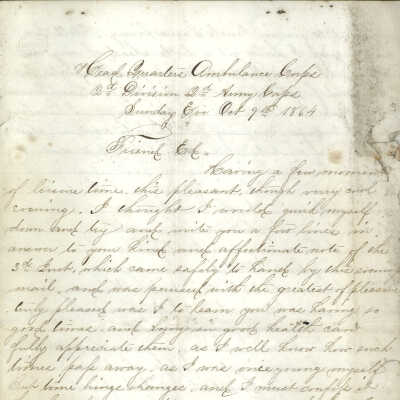 Head Quarters Ambulance Corps
2d Division 2d Army Corps
Sunday Eve Oct 9th 1864
Friend Ed.
Having a few moments
of leisure time, this pleasant, though very cool
evening. I thought I would quid myself
down and try and write you a few lines in
answer to your kind and affectionate note of the
3d Inst, which came safely to hand by this evening
mail, and was perused with the greatest of pleasure
truly pleased was I to learn you was having so
good times and enjoying good health and
fully appreciate them, as I well know how such
times pass away, as I was once young myself
But time brings changes, and I must confess it